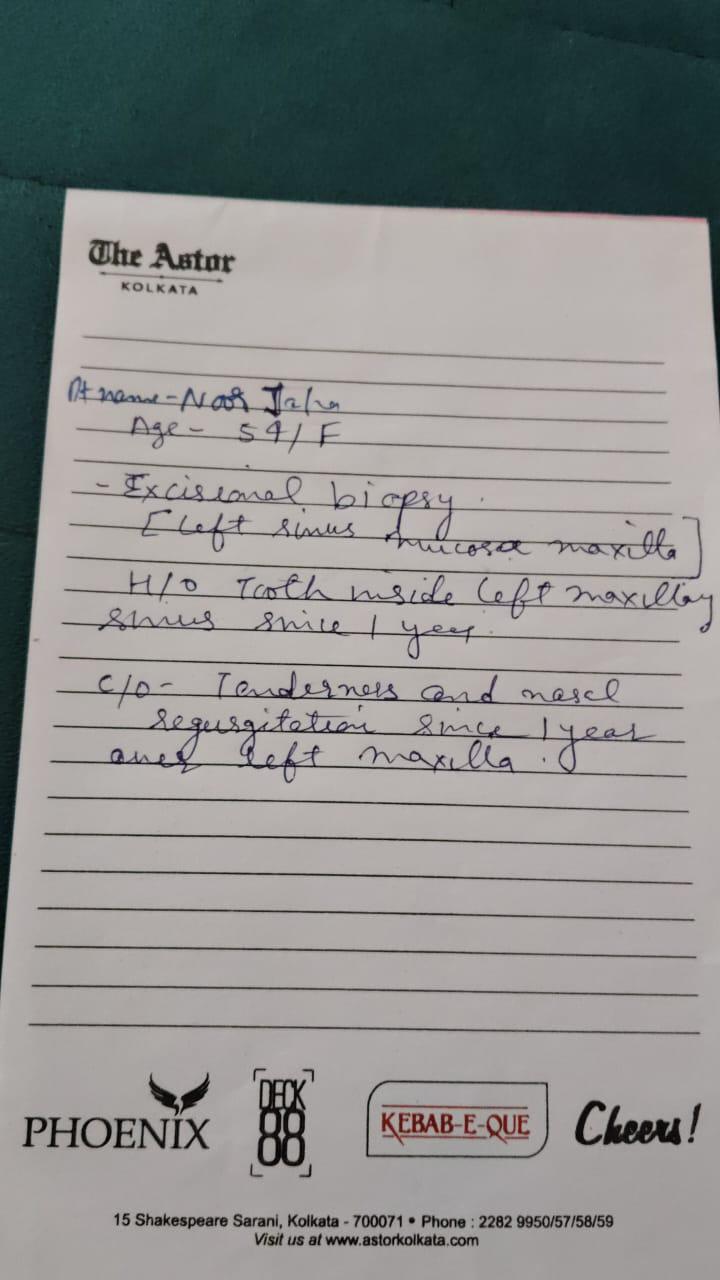 The Astor
KOLKATA
Pt name - Noor Jaha
Age - 54/F
- Excisional biopsy.
[Left sinus mucosa maxilla]
H/O Tooth inside left maxillay
sinus since 1 year.
C/O - Tenderness and nasal
regurgitation since 1 year
over left maxilla.
PHOENIX
DECK
88
KEBAB-E-QUE
Cheers!
15 Shakespeare Sarani, Kolkata - 700071 • Phone : 2282 9950/57/58/59
Visit us at www.astorkolkata.com